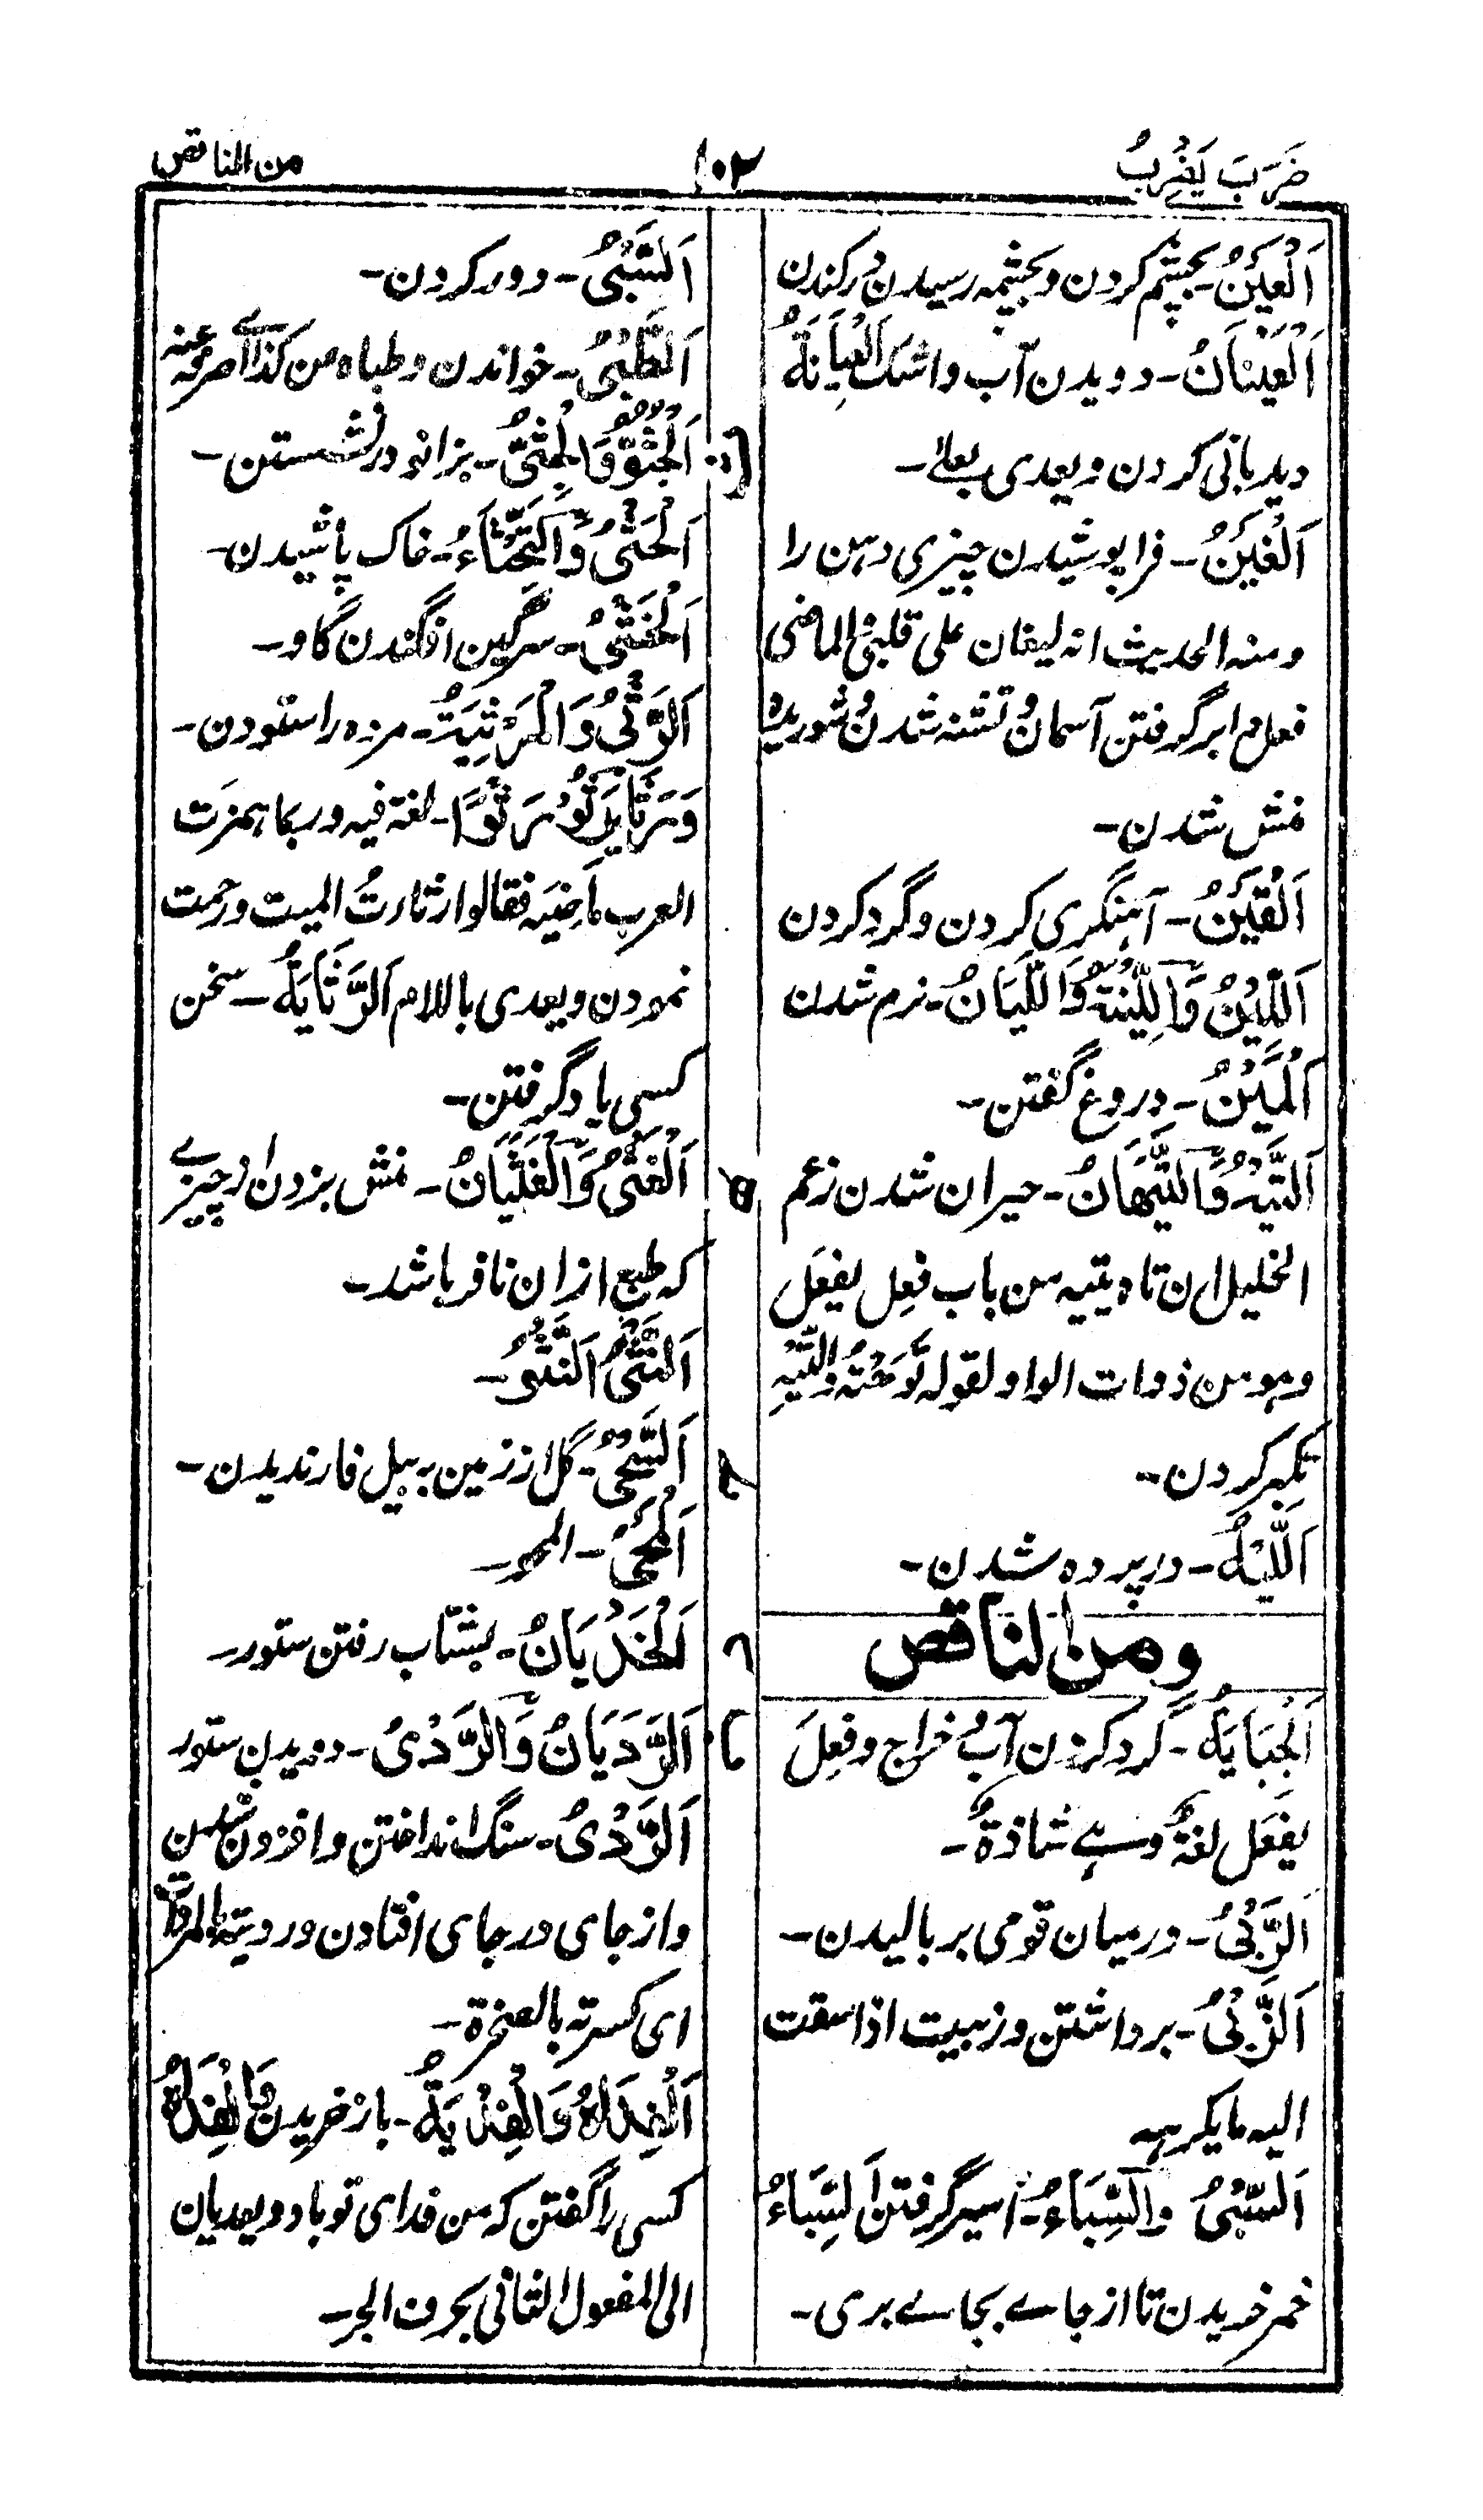 ضَرَبَ يَضْرِبُ
١٠٢
من الناقص
اَلْعَيْنُ۔ بچشم کردن و بچشمہ رسیدن در کندن
اَلْعَيَنَانُ۔ دویدن آب و اشک اَلْعِيَانَةُ
دیدبانی کردن ویعدی بعلے۔
اَلْغَيْنُ۔ فراپوشیدن چیزی دہن را
ومنہ الحدیث انہ لیغان علی قلبی والماضی
فعل م ابر گرفتن آسمان و تشنہ شدن و شوریدہ
منش شدن۔
اَلْقَيْنُ۔ آہنگری کردن وگرد کردن
اَللِّيْنُ وَاللِّيْنَةُ وَاللَّيَانُ۔ نرم شدن
اَلْمَيْنُ۔ دروغ گفتن۔
اَلتِّيْهُ وَالتَّيَهَانُ۔ حیران شدن زعم
الخلیل ان تاہ یتیہ من باب فعِل یفعِل
وہو من ذوات الواو لقولہ تَوَّهْتُهُ وَالتِّيْهُ
تکبر کردن۔
اَللَّيْهُ۔ درپردہ شدن۔
ومن الناقص
اَلْجِبَايَةُ۔ گرد کردن آب و خراج وفعَل
یفعَل لغۃٌ وہے شاذۃٌ۔
اَلرَّبْيُ۔ درمیان قومی بربالیدن۔
اَلزَّبْيُ۔ برداشتن وزبیت اذا سقت
الیہ ما یکرہہ
اَلسَّبْيُ وَالسِّبَاءُ۔ اسیر گرفتن اَلسِّبَاءُ
خمر خریدن تا از جاے بجاے بری۔
اَلسَّبْيُ۔ دور کردن۔
اَلطَّبْيُ۔ خواندن وطباہ من کذا اے صرفہ عنہ
اَلْجُثُوُّ وَالْجُثِيُّ۔ بزانو درنشستن۔
اَلْحَثْيُ وَالتَّحْثَاءُ۔ خاک پاشیدن۔
اَلْخَثْيُ۔ سرگین افگندن گاو۔
اَلرَّثْيُ وَالْمَرْثِيَةُ۔ مردہ را ستودن۔
وَرَثَا يَرْثُوْ رَثْوًا۔ لغۃ فیہ وربما ہمزت
العرب ماضیَہ فقالوا رثأتُ المیت ورحمت
نمودن ویعدی باللام اَلرِّثَايَةُ۔ سخن
کسی یاد گرفتن۔
اَلْغَثْيُ وَالْغَثَيَانُ۔ منش بزدن از چیزے
کہ طبع ازان نافر باشد۔
اَلنَّثْيُ اَلنَّثْوُ۔
اَلسَّحْيُ۔ گل از زمین بہ بیل فارندیدن۔
اَلْمَحْيُ۔ المحو۔
اَلْخَدَيَانُ۔ بشتاب رفتن ستور۔
اَلرَّدَيَانُ وَالرَّدْيُ۔ دویدن ستور
اَلرَّدْيُ۔ سنگ انداختن وافزودن شدن
واز جای در جای افتادن وردیتہ بالمرداۃ
ای کسرتہ بالصخرۃ۔
اَلْفِدَاءُ وَالْفِدْيَةُ۔ باز خریدن وَالْفِدَاءُ
کسی را گفتن کہ من فدای تو باد ویعدیان
الی المفعول الثانی بحرف الجر۔